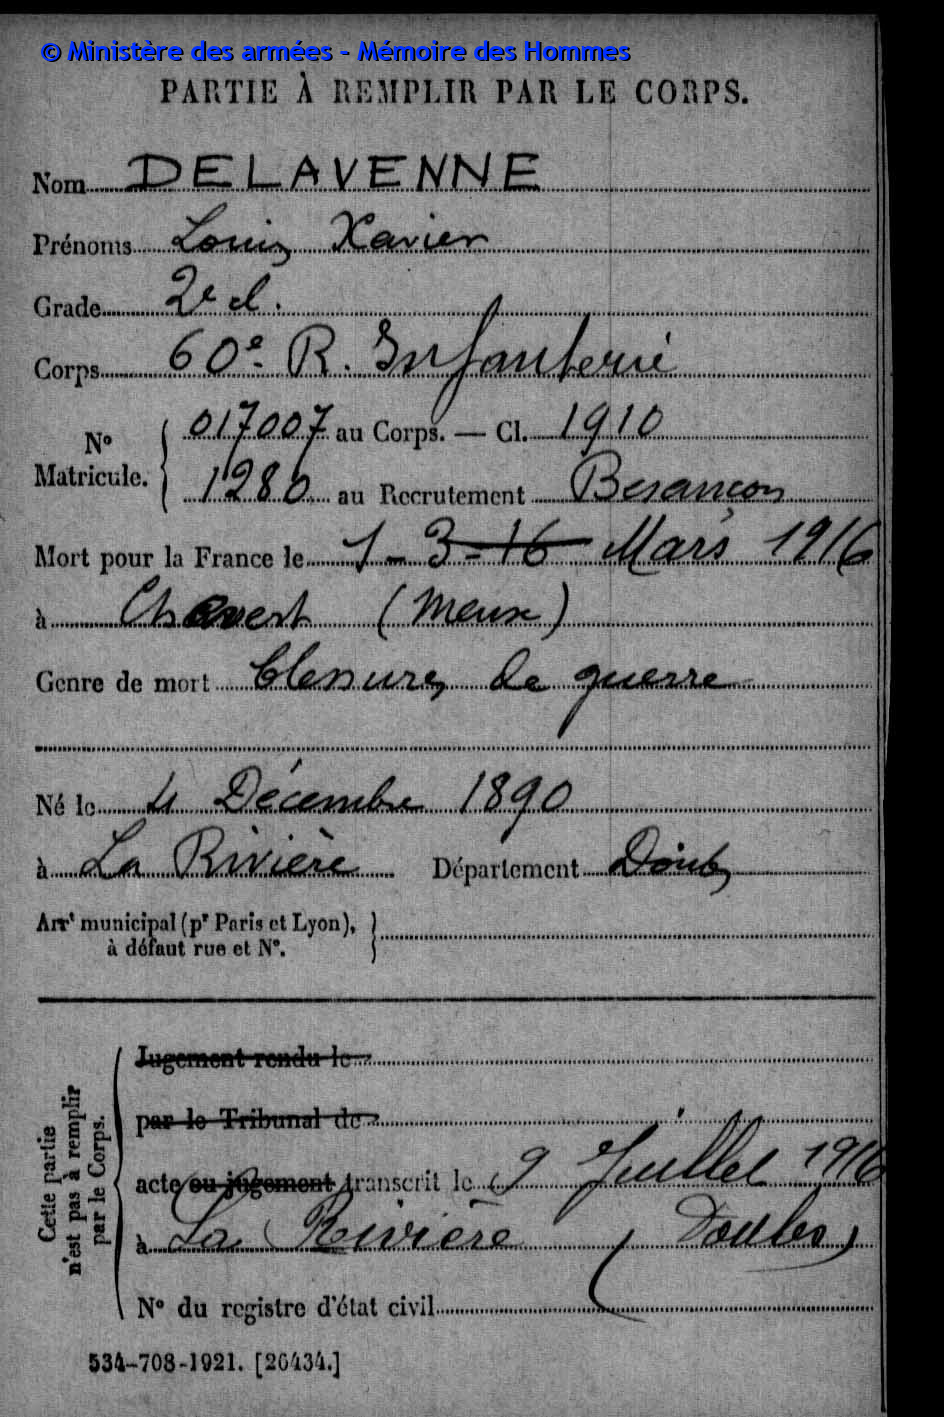 © Ministère des armées - Mémoire des Hommes
PARTIE À REMPLIR PAR LE CORPS.
Nom DELAVENNE
Prénoms Louis Xavier
Grade 2e cl.
Corps 60e R. Infanterie
N° Matricule. 017007 au Corps. — Cl. 1910
1280 au Recrutement Besançon
Mort pour la France le 1 - 3 - 16 Mars 1916
à Chavert (Meuse)
Genre de mort blessures de guerre
Né le 4 Décembre 1890
à La Rivière Département Doubs
Arrt municipal (pr Paris et Lyon),
à défaut rue et N°.
Cette partie n'est pas à remplir par le Corps.
Jugement rendu le
par le Tribunal de
acte ou jugement transcrit le 9 Juillet 1916
à La Rivière (Doubs)
N° du registre d'état civil
534-708-1921. [26434.]